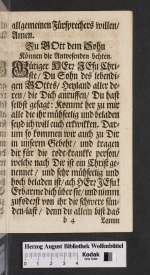 allgemeinen Fürsprechers willen/
Amen.
Zu GOtt dem Sohn
Können die Anwesenden bethen.
HErr JEsu Chri-
ste/ Du Sohn des lebendi-
gen GOttes/ Heyland aller de-
ren/ die Dich anruffen; Du hast
selbst gesagt: Kommt her zu mir
alle die ihr mühselig und beladen
seyd/ ich will euch erquicken. Dar-
um so kommen wir auch zu Dir
in unserm Gebeht/ und tragen
dir für die todt-krancke person/
welche nach Dir ist ein Christ ge-
nennet/ und sehr mühselig und
hoch beladen ist/ ach HErr JEsu!
Erbarme dich über sie/ und nimm
zuforderst von ihr die schwere sün-
den-last/ denn du allein bist das
b 4 Lamm
Herzog August Bibliothek Wolfenbüttel